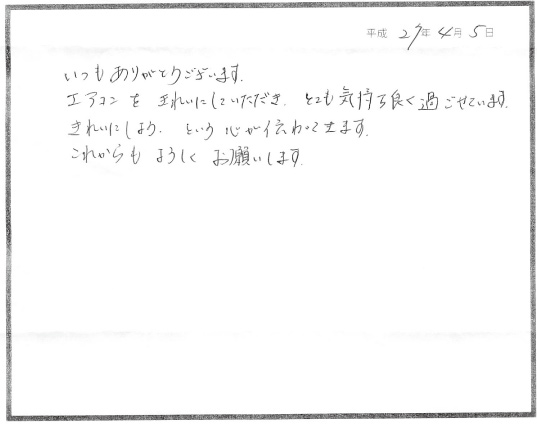 平成 27年 4月 5日
いつもありがとうございます.
エアコンをきれいにしていただき、とても気持ち良く過ごせています.
きれいにしよう、という心が伝わってきます.
これからもよろしくお願いします.